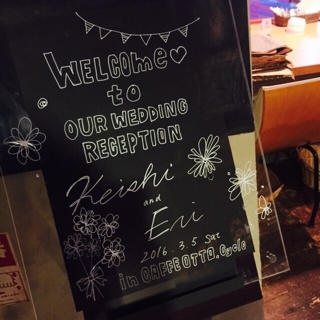 WELCOMe
to
OUR WEDDING
RECEPTION
Keishi
and
Eri
2016. 3. 5 Sat
in CAFFE OTTO. Cyclo